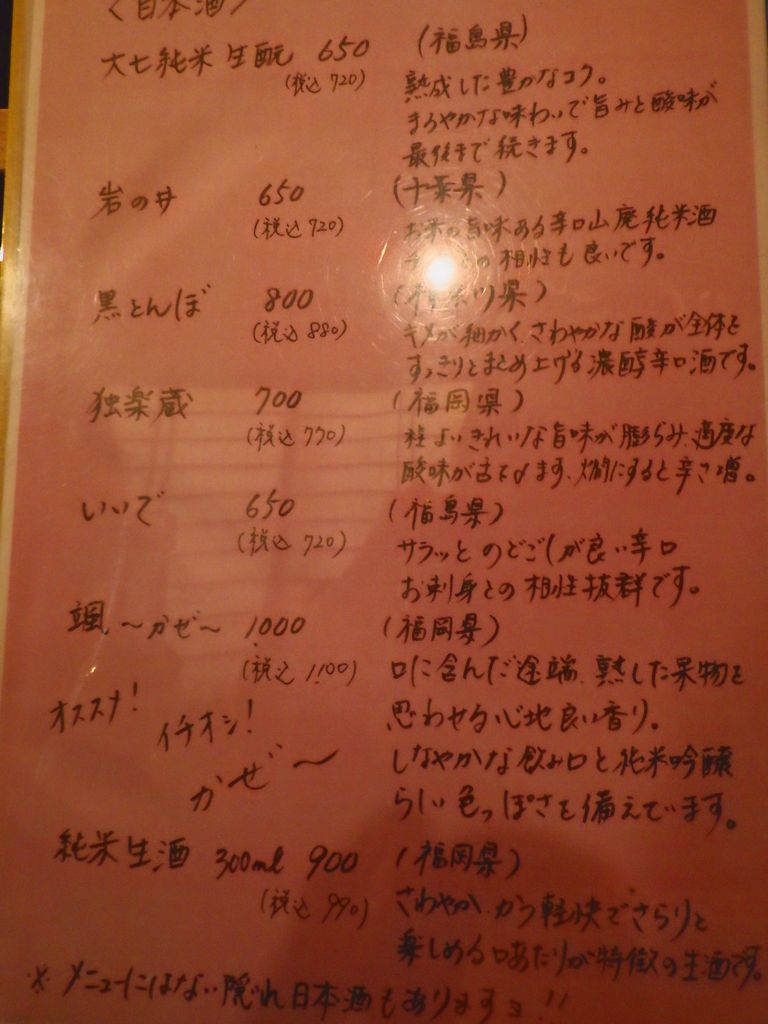 〈日本酒〉
大七純米生酛 650 (福島県)
(税込720) 熟成した豊かなコク。
まろやかな味わいで旨みと酸味が
最後まで続きます。
岩の井 650 (千葉県)
(税込720) お米の旨味ある辛口山廃純米酒
との相性も良いです。
黒とんぼ 800 (神奈川県)
(税込880) キメが細かく、さわやかな酸が全体を
すっきりとまとめ上げる濃醇辛口酒です。
独楽蔵 700 (福岡県)
(税込770) 程よいきれいな旨味が膨らみ、適度な
酸味が古め〆ます、燗にすると辛さ増。
いいで 650 (福島県)
(税込720) サラッとのどごしが良い辛口
お刺身との相性抜群です。
颯〜かぜ〜 1000 (福岡県)
(税込1100) 口に含んだ途端、熟した果物を
オススメ! 思わせる心地良い香り。
イチオシ! しなやかな飲み口と純米吟醸
かぜ〜 らしい色っぽさを備えています。
純米生酒 300ml 900 (福岡県)
(税込990) さわやか、かつ軽快でさらりと
楽しめる口あたりが特徴の生酒です。
※メニューにはない隠れ日本酒もありますョ!!